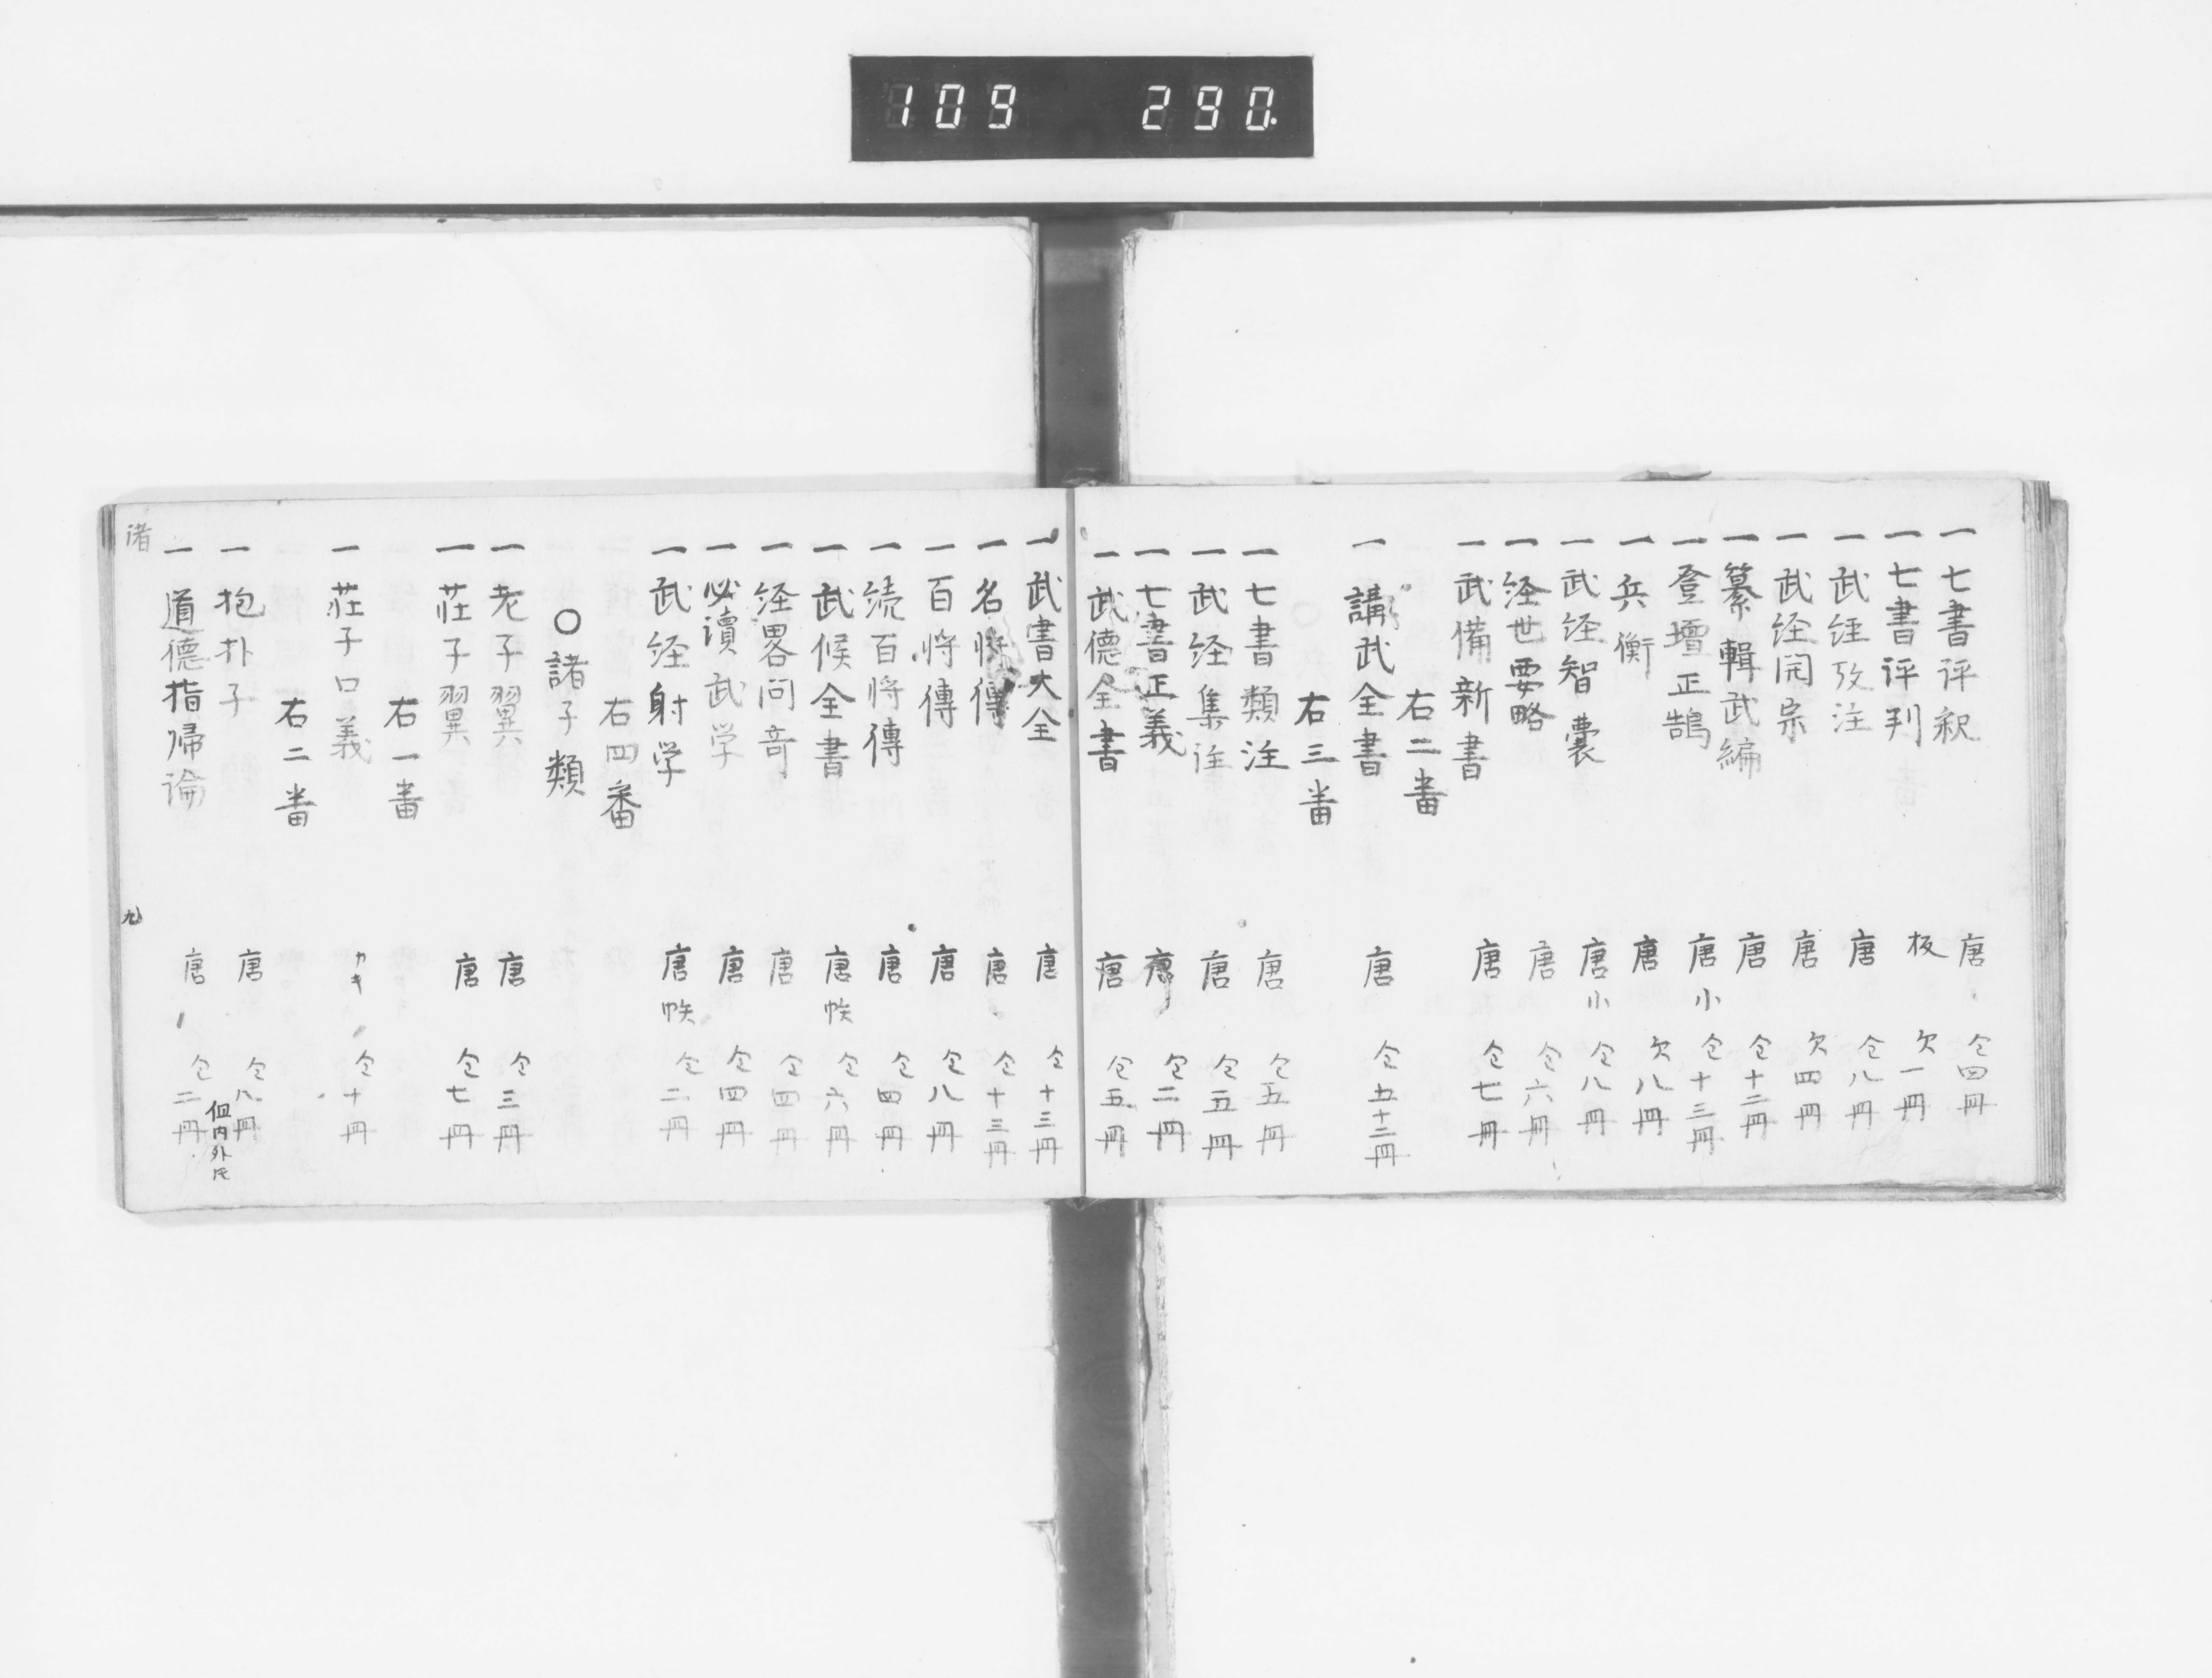 109 290.
一七書評釈 唐 仝四冊
一七書評判 板 欠一冊
一武経攷注 唐 仝八冊
一武経開宗 唐 欠四冊
一纂輯武編 唐 仝十二冊
一登壇正鵠 唐小 仝十三冊
一兵衡 唐 欠八冊
一武経智嚢 唐小 仝八冊
一経世要略 唐 仝六冊
一武備新書 唐 仝七冊
右二番
一講武全書 唐 仝五十二冊
右三番
一七書類注 唐 仝五冊
一武経集注 唐 仝五冊
一七書正義 唐 仝二冊
一武徳全書 唐 仝五冊
一武書大全 唐 仝十三冊
一名将傳 唐 仝十三冊
一百将傳 唐 仝八冊
一続百将傳 唐 仝四冊
一武候全書 唐帙 仝六冊
一経畧問奇 唐 仝四冊
一必讀武学 唐 仝四冊
一武経射学 唐帙 仝二冊
右四番
〇諸子類
一老子翼 唐 仝三冊
一荘子翼 唐 仝七冊
右一番
一荘子口義 カキ 仝十冊
右二番
一抱朴子 唐 仝八冊
但内外
一道徳指帰論 唐 仝二冊
諸
九